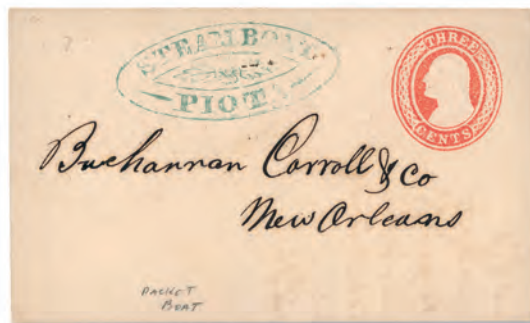 STEAMBOAT
PIOTA
THREE
CENTS
Buchannan Carroll & Co
New Orleans
PACKET
BOAT